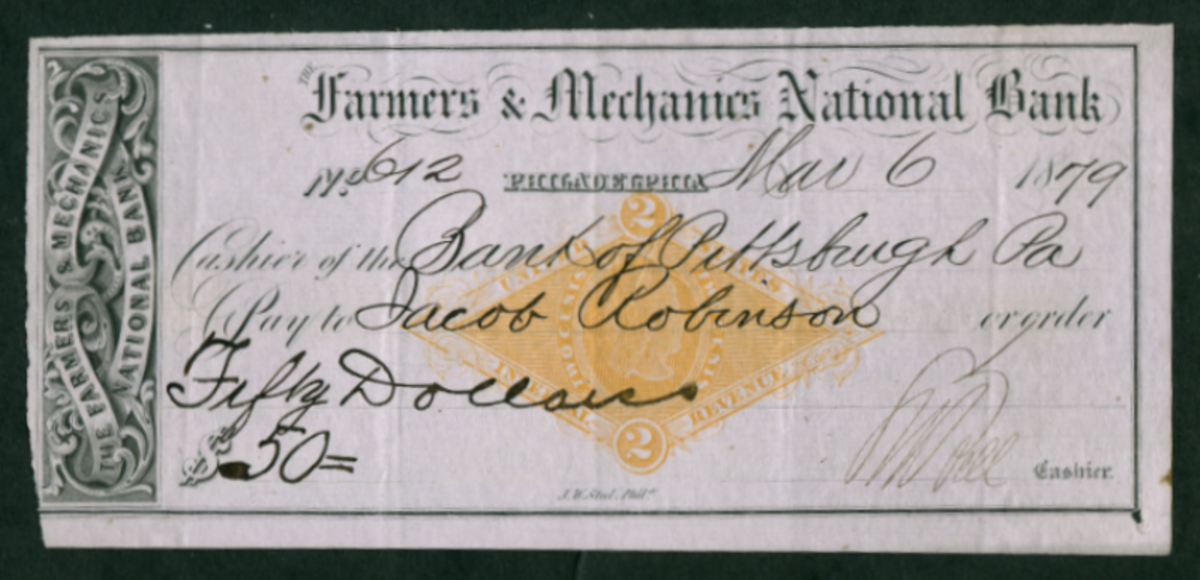 THE FARMERS & MECHANICS
NATIONAL BANK
THE Farmers & Mechanics National Bank
No 612 PHILADELPHIA Mar 6 1879
Cashier of the Bank of Pittsburgh Pa
Pay to Jacob Robinson or order
Fifty Dollars
$50=
Cashier.
2
UNITED STATES
INTERNAL REVENUE
2
J.W. Steel, Phila